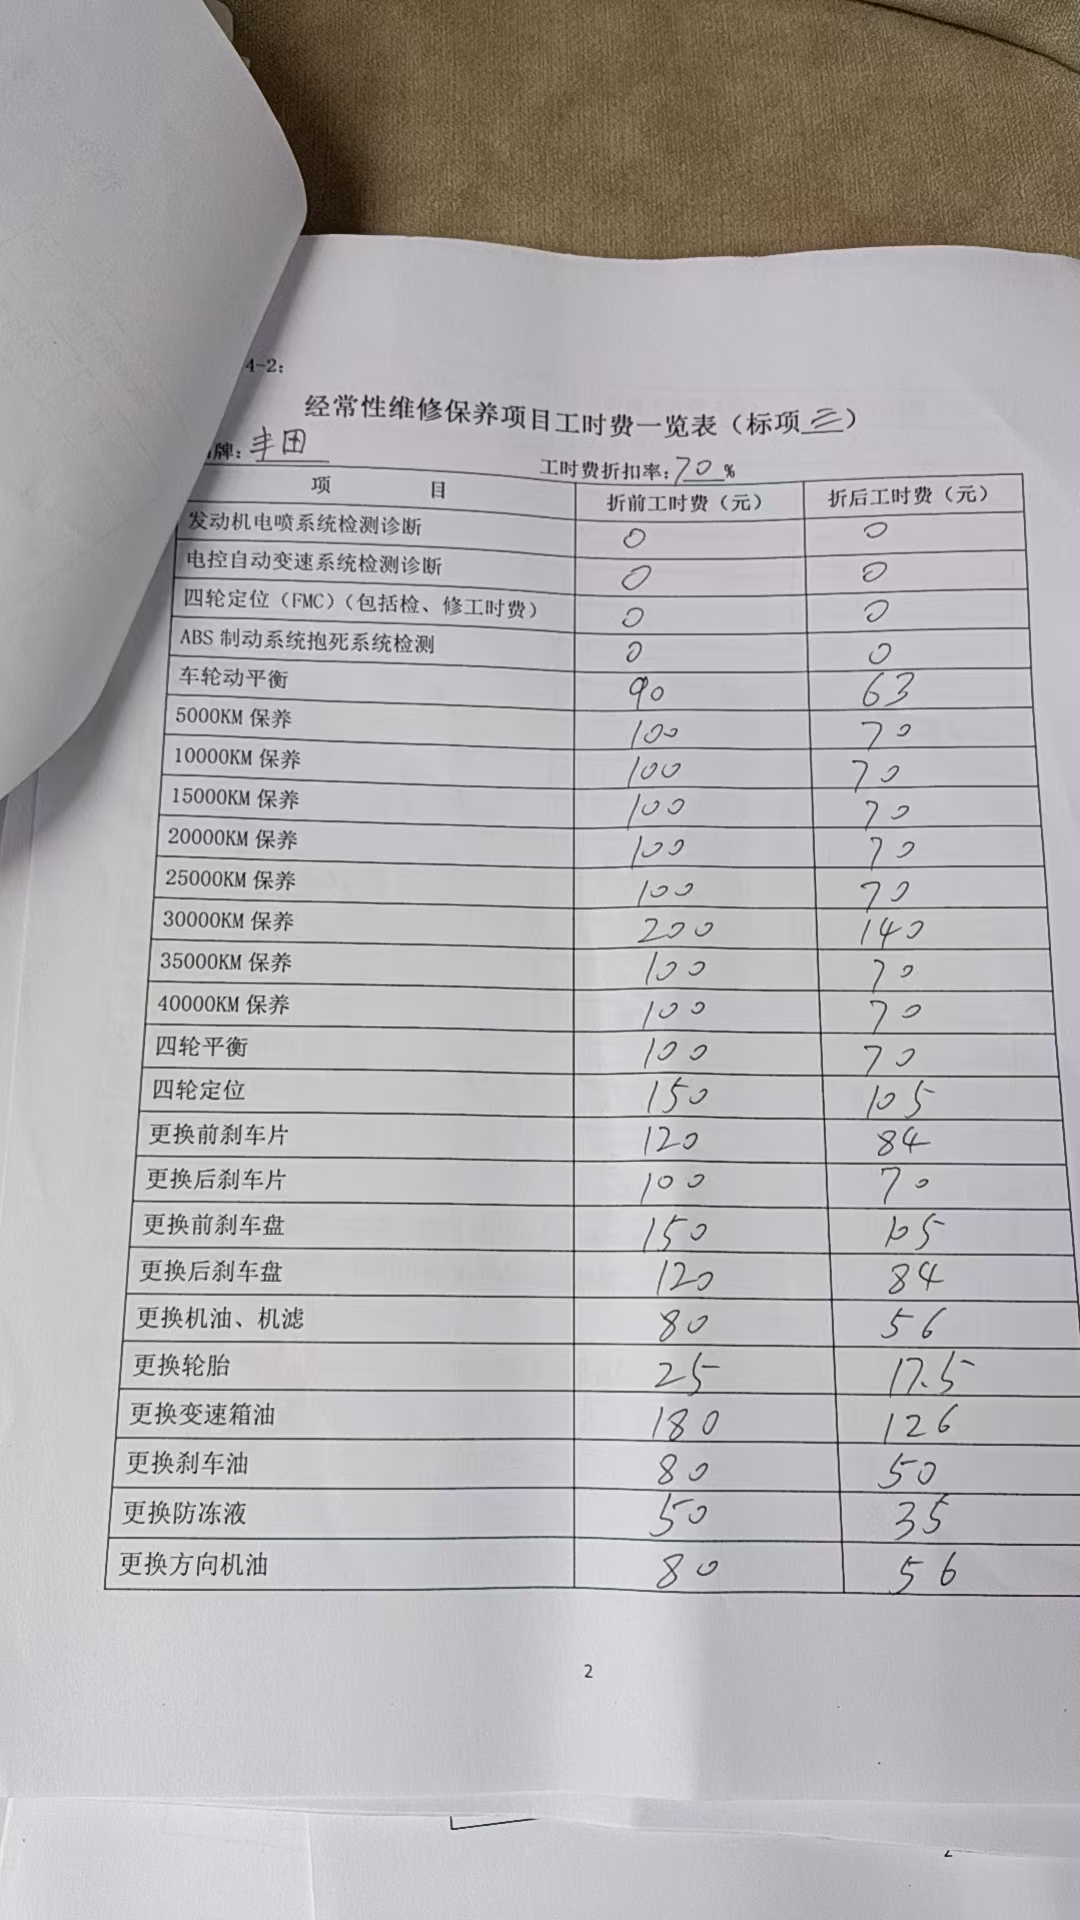 4-2:
经常性维修保养项目工时费一览表（标项三）
牌：丰田 工时费折扣率：70%
项 目 折前工时费（元） 折后工时费（元）
发动机电喷系统检测诊断 0 0
电控自动变速系统检测诊断 0 0
四轮定位（FMC）（包括检、修工时费） 0 0
ABS 制动系统抱死系统检测 0 0
车轮动平衡 90 63
5000KM 保养 100 70
10000KM 保养 100 70
15000KM 保养 100 70
20000KM 保养 100 70
25000KM 保养 100 70
30000KM 保养 200 140
35000KM 保养 100 70
40000KM 保养 100 70
四轮平衡 100 70
四轮定位 150 105
更换前刹车片 120 84
更换后刹车片 100 70
更换前刹车盘 150 105
更换后刹车盘 120 84
更换机油、机滤 80 56
更换轮胎 25 17.5
更换变速箱油 180 126
更换刹车油 80 50
更换防冻液 50 35
更换方向机油 80 56
2